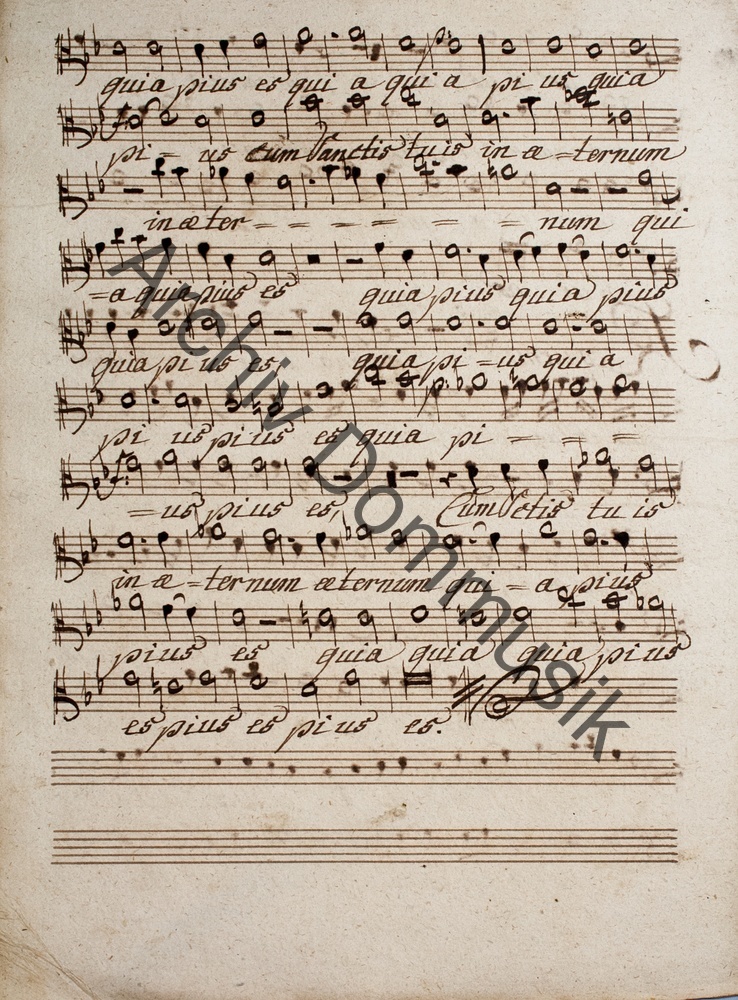 quia pius es qui a qui a pi us quia
pi = us Cum Sanctis tuis in æ = ternum
in æter = = = = = = = num qui
= a quia pius es quia pius quia pius
quia pi us es quia pi = us qui a
pi us pius es quia pi = = =
= us pius es, Cum Sctis tu is
in æ = ternum æternum qui = a pius
pius es quia quia quia pius
es pius es pi us es.
Archiv Dommusik